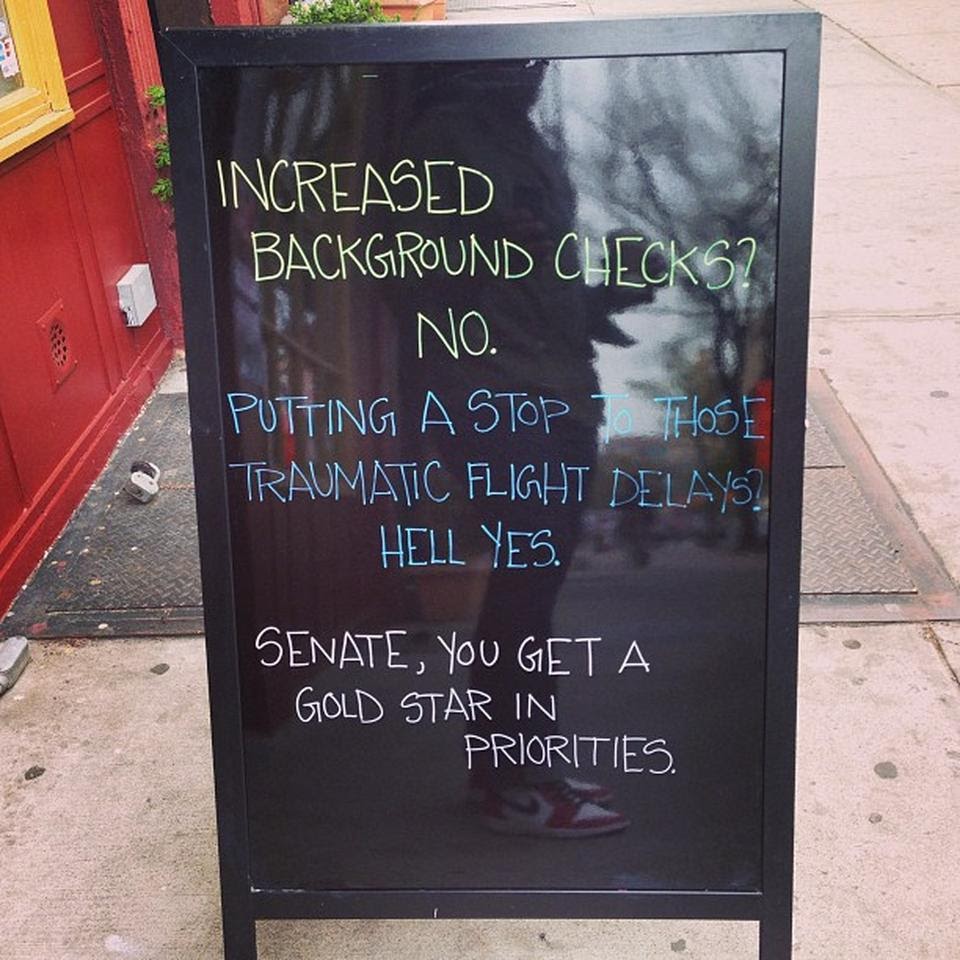 INCREASED
BACKGROUND CHECKS?
NO.
PUTTING A STOP TO THOSE
TRAUMATIC FLIGHT DELAYS?
HELL YES.
SENATE, YOU GET A
GOLD STAR IN
PRIORITIES.